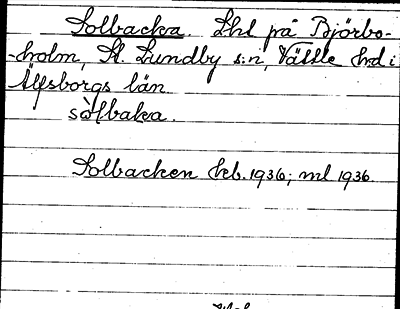 Solbacka. Lht på Björbo-
-holm, St. Lundby s:n, Vättle hd i
Älfsborgs län
sòlbaka.
Solbacken keb. 1936; ml 1936.